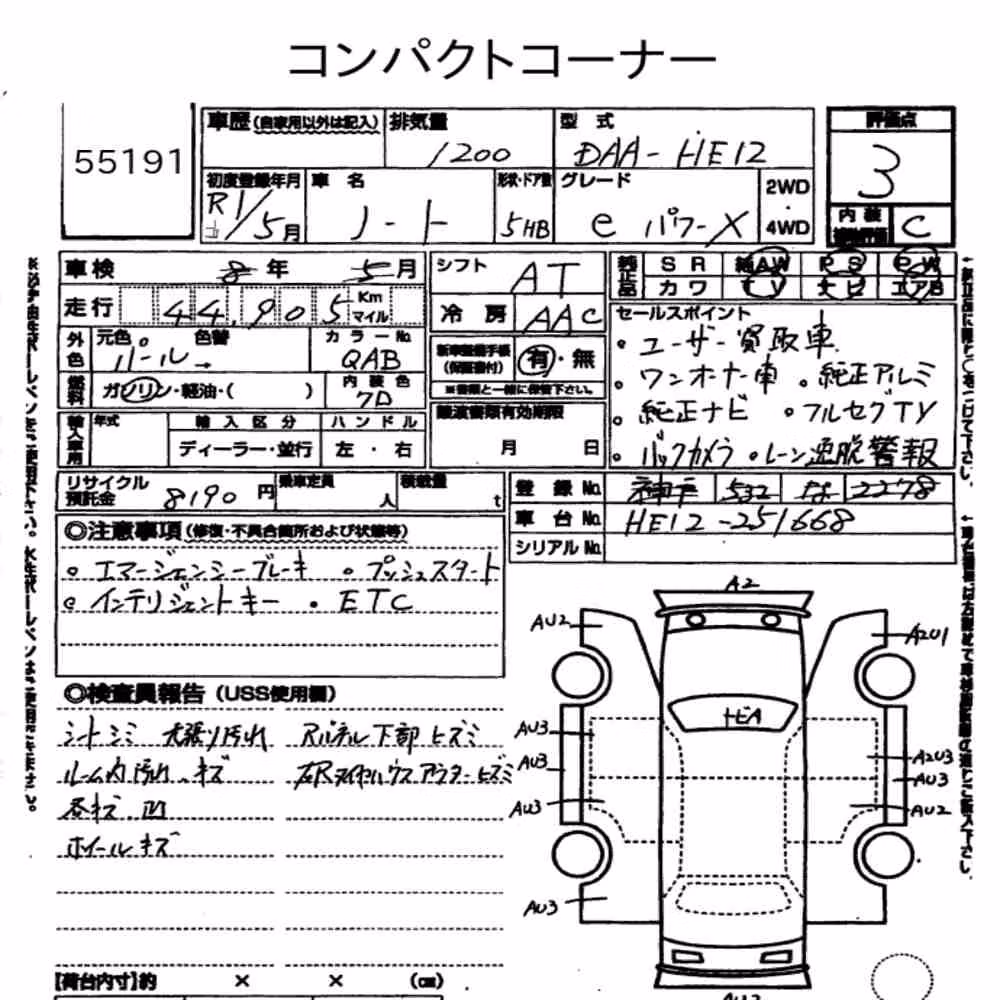 コンパクトコーナー
55191
車歴 (自家用以外は記入) 排気量 1200
型式 DAA-HE12
評価点 3
初度登録年月 R1/5月
車名 ノート
形状・ドア数 5HB
グレード e パワーX
2WD・4WD
内装 C
車検 8年 5月
シフト AT
純正品 SR AW PS PW
カワ TV ナビ エアB
走行 44,905 Km マイル
冷房 AAC
セールスポイント
・ユーザー買取車
・ワンオーナー車 ・純正アルミ
・純正ナビ ・フルセグTV
・バックカメラ ・レーン逸脱警報
外色 元色 パール 色替 カラーNo. QAB
新車整備手帳 (保証書付) 有・無
※書類と一緒に保管下さい。
燃料 ガソリン・軽油・( ) 内装色
譲渡書類有効期限 月 日
輸入車用 年式 輸入区分 ディーラー・並行 ハンドル 左・右
リサイクル預託金 8190円 乗車定員 人 積載量 t
登録No. 神戸 532 な 2278
車台No. HE12-251668
シリアルNo.
◎注意事項 (修復・不具合箇所および状態等)
・エマージェンシーブレーキ ・プッシュスタート
・インテリジェントキー ・ETC
◎検査員報告 (USS使用欄)
シートシミ 天張り汚れ Rパネル下部ヒズミ
ルーム内汚れ、キズ 右Rタイヤハウスアウターヒズミ
各キズ、凹
ホイールキズ
【荷台内寸】約 × × (cm)
A2
AU2
A2U1
トビA
AU3
A2U3
AU3
AU3
AU3
AU2
AU3